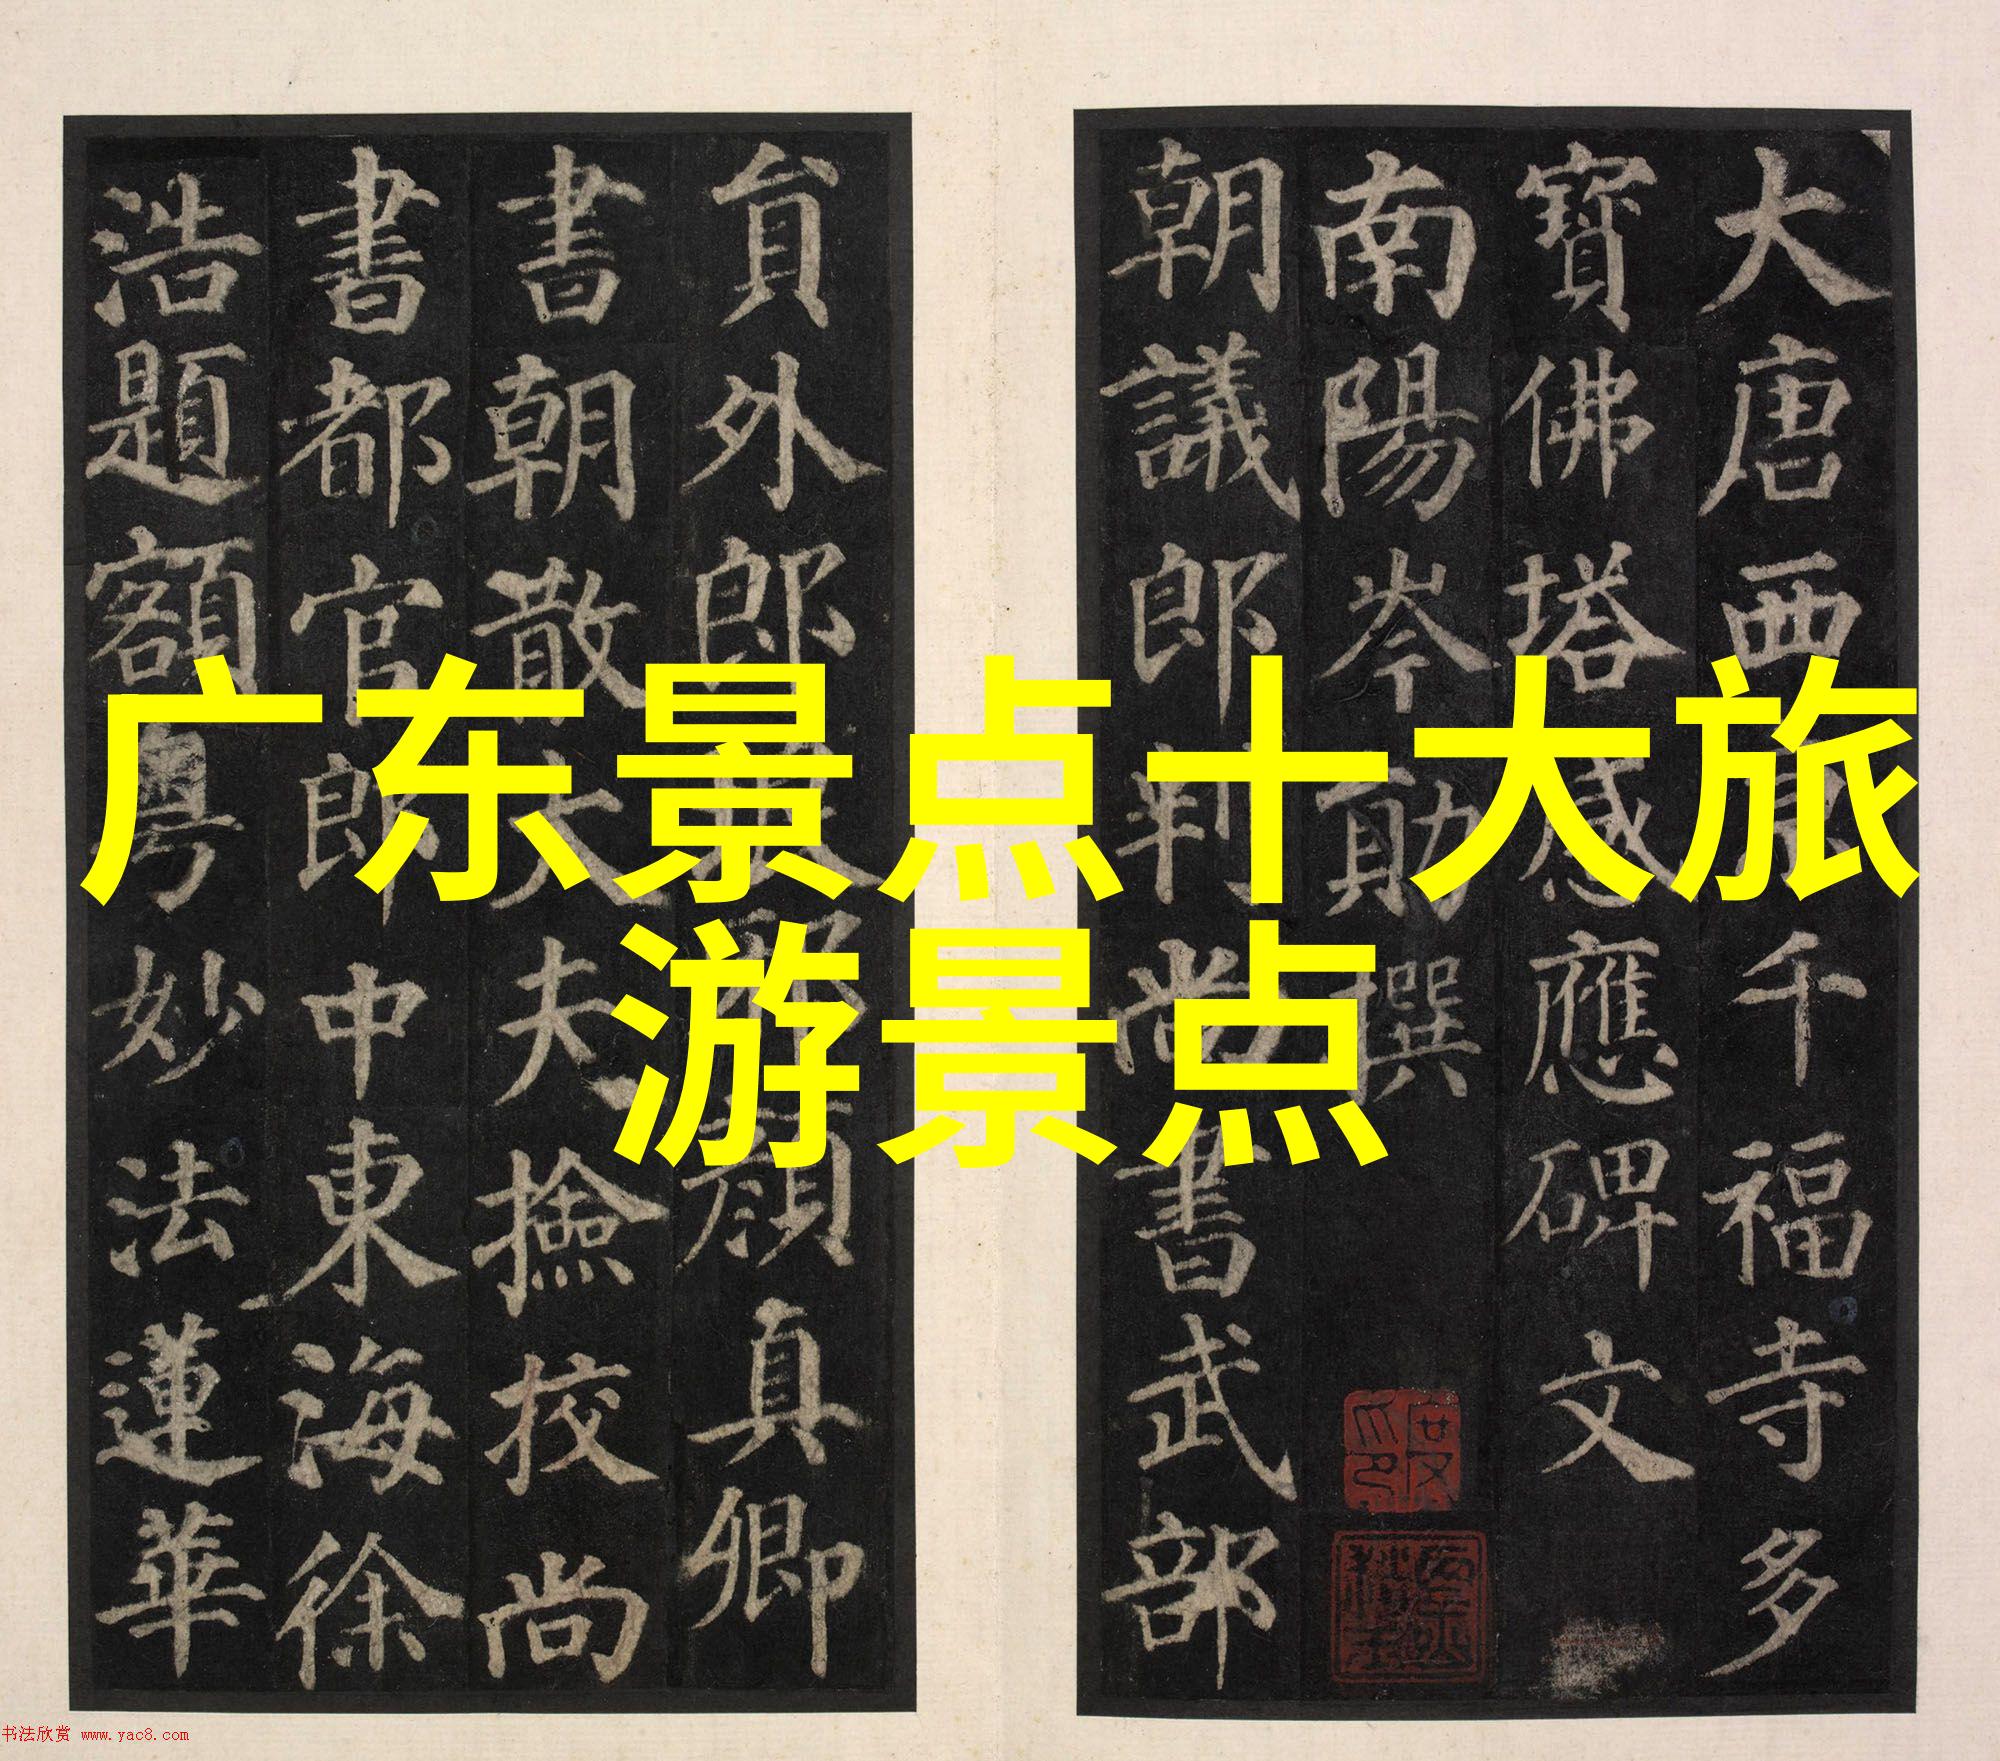 广东景点十大旅
游景点
大唐西千福寺多
寶佛塔感應碑文
南陽岑勛撰
朝議郎判尚書武部
貟外郎顏真卿
書朝散大夫撿校尚
書都官郎中東海徐
浩題額粵妙法蓮華
书法欣赏 www.yac8.com